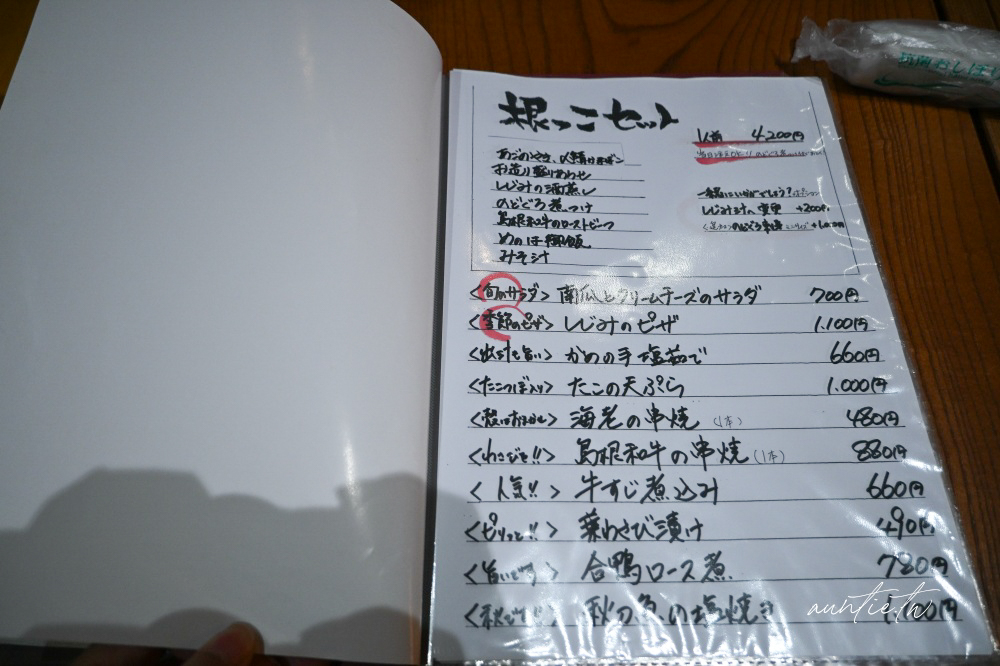 根っこセット
1人前 4,200円
あごのやき、
お造り盛りあわせ
しじみの酒蒸し
のどぐろ煮つけ
島根和牛のローストビーフ
めのは御飯
みそ汁
一緒にいかがでしょう?
しじみ汁へ変更 +200円
<旬のサラダ> 南瓜とクリームチーズのサラダ 700円
<季節のピザ> しじみのピザ 1,100円
かめの手塩茹で 660円
<たこつぼ入り> たこの天ぷら 1,000円
海老の串焼 (1本) 480円
島根和牛の串焼 (1本) 880円
<人気!!> 牛すじ煮込み 660円
<ピリッと!!> 葉わさび漬け 490円
合鴨ロース煮 780円
秋の魚の塩焼き
auntie.tw
抗菌おしぼり